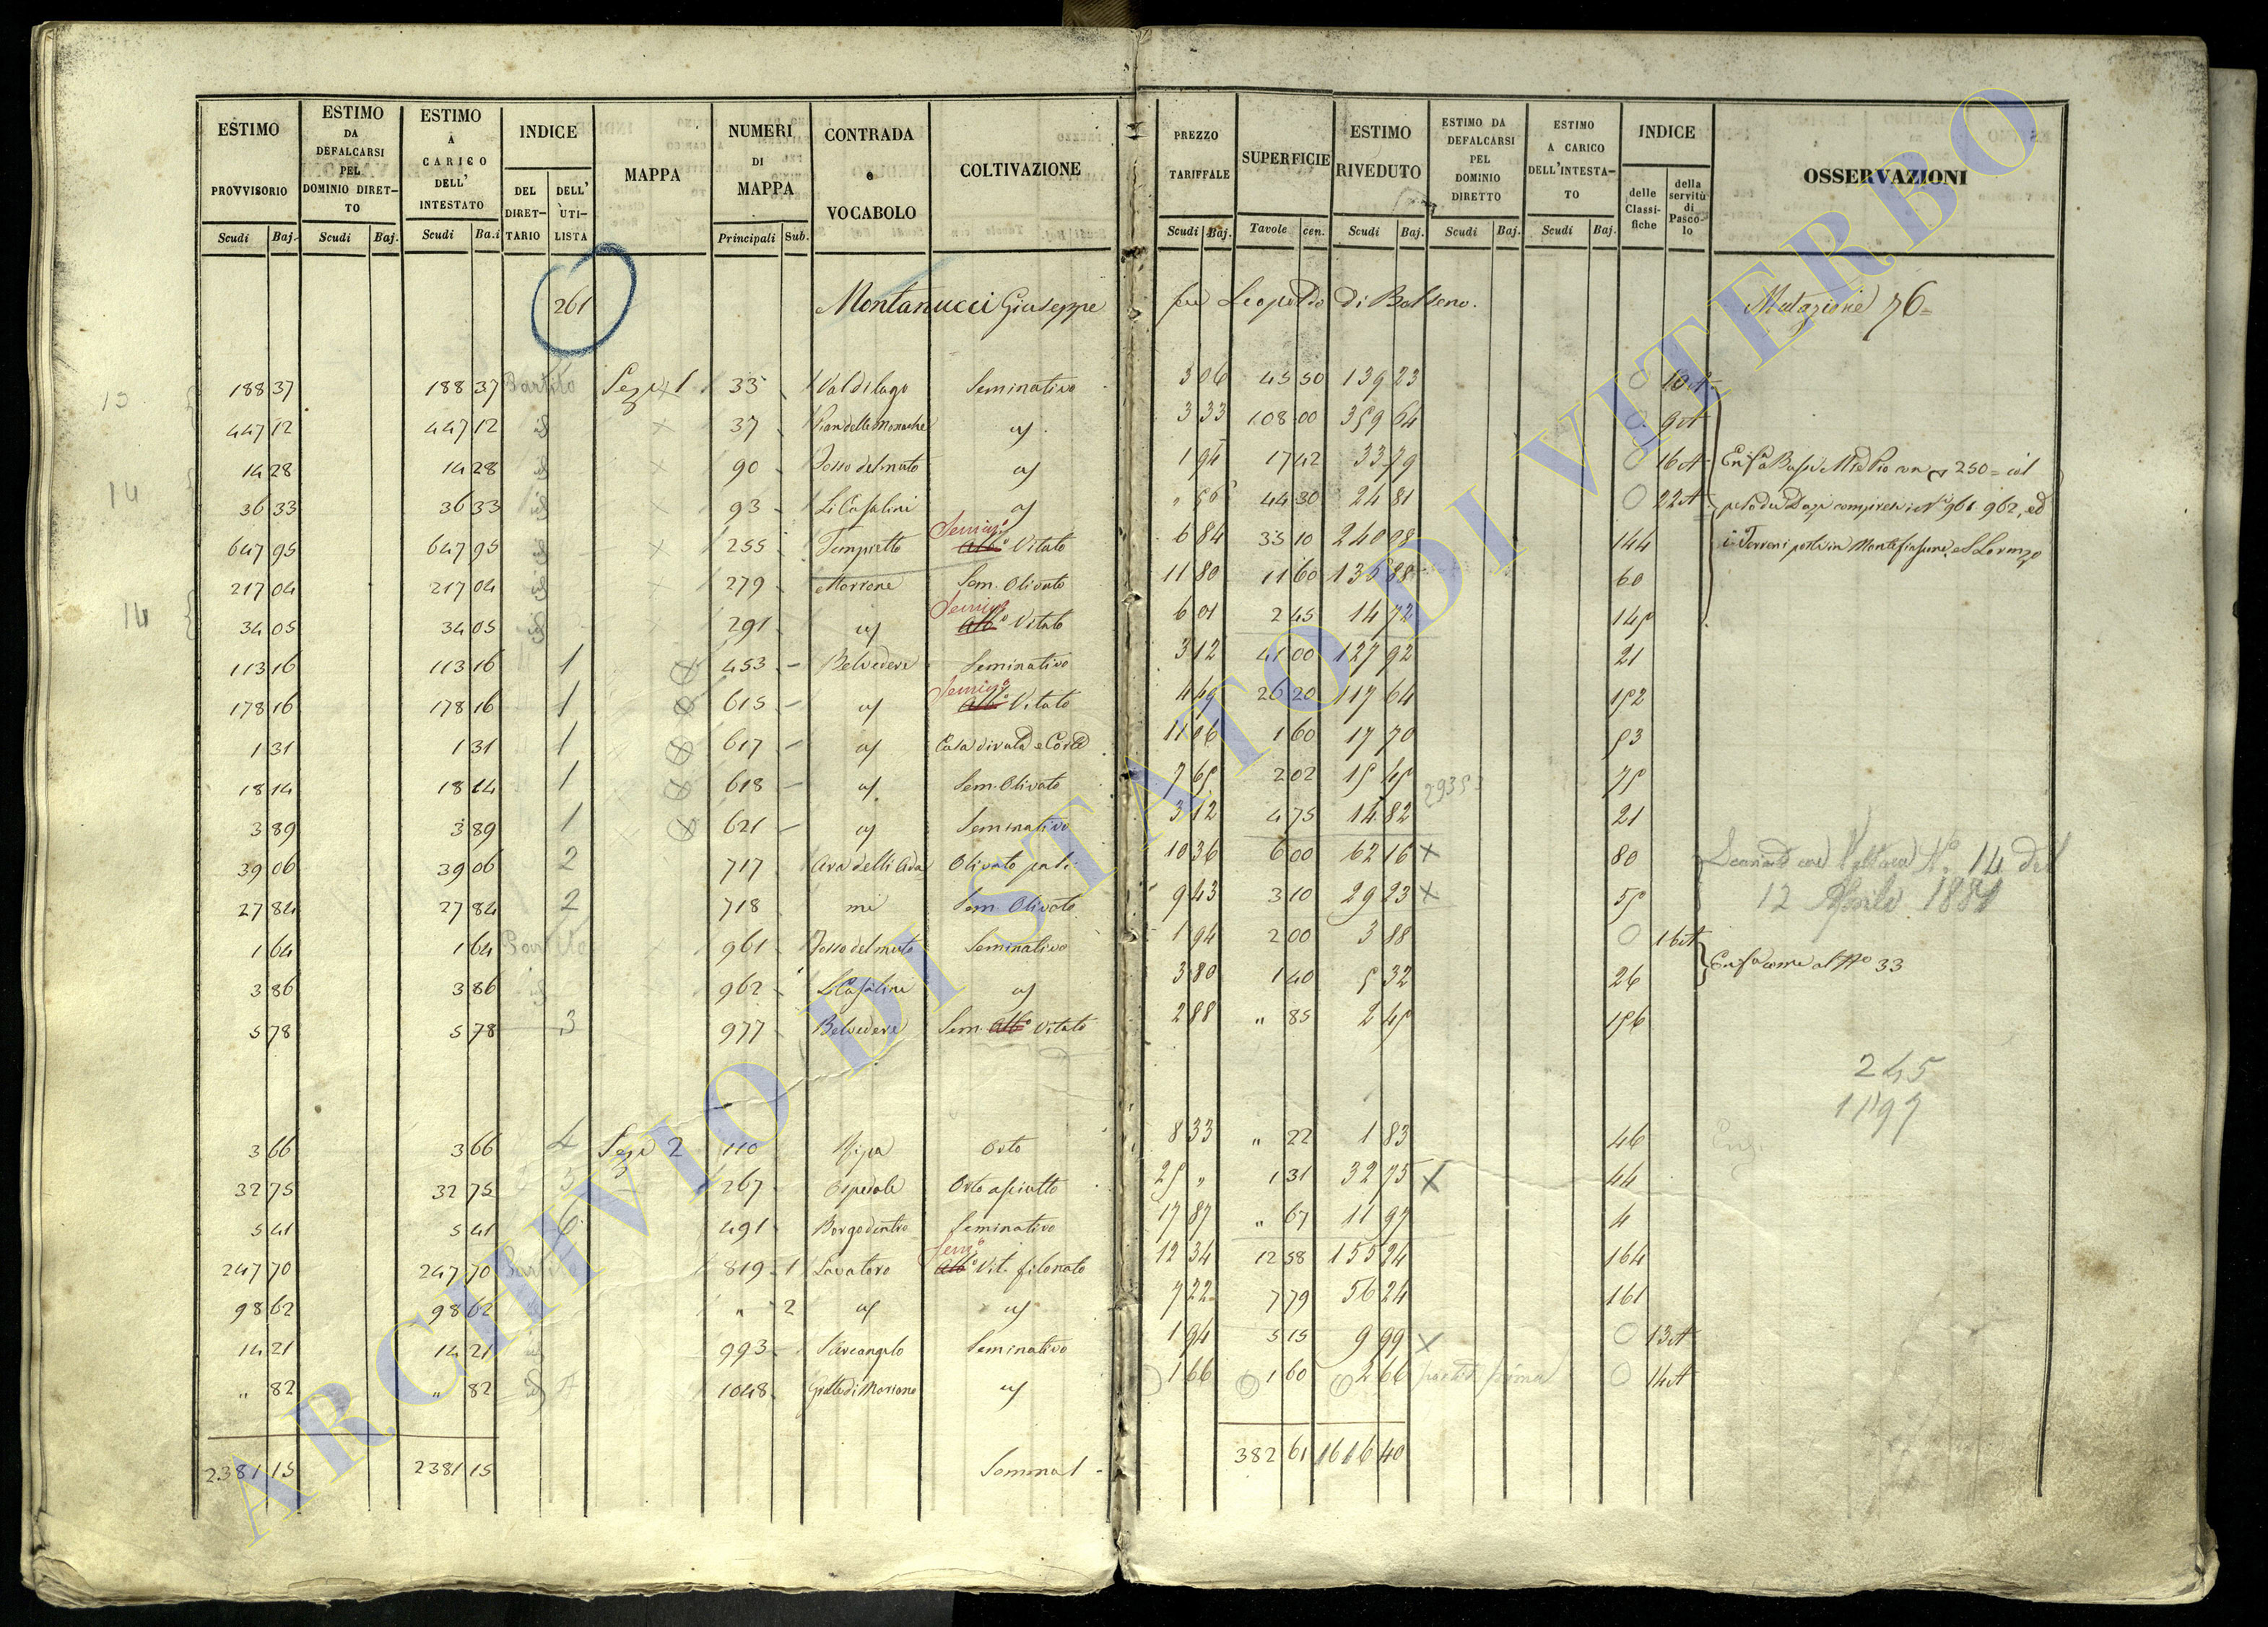 ESTIMO PROVVISORIO Scudi Baj. ESTIMO DA DEFALCARSI PEL DOMINIO DIRETTO Scudi Baj. ESTIMO A CARICO DELL' INTESTATO Scudi Ba.i INDICE DEL DIRETTARIO DELL' UTILISTA MAPPA NUMERI DI MAPPA Principali Sub. CONTRADA e VOCABOLO COLTIVAZIONE PREZZO TARIFFALE Scudi Baj. SUPERFICIE Tavole cen. ESTIMO RIVEDUTO Scudi Baj. ESTIMO DA DEFALCARSI PEL DOMINIO DIRETTO Scudi Baj. ESTIMO A CARICO DELL'INTESTATO Scudi Baj. INDICE delle Classifiche della servitù di Pascolo OSSERVAZIONI
261 Montanucci Giuseppe fu Leopoldo di Bolseno. Mutazione 76=
188 37 188 37 Partito Sez. 1 33 Val di lago Seminativo 3 06 45 50 139 23 0 10 A
447 12 447 12 id 37 Pian delle Monache id 3 33 108 00 359 64 0 9 A
14 28 14 28 id 90 Fosso del muto id 1 94 17 42 33 79 0 16 A
36 33 36 33 id 93 Li Casalini id " 56 44 30 24 81 0 22 A
647 95 647 95 id 255 Tempietto Vitato 6 84 35 10 240 08 144
217 04 217 04 id 279 Morrone Sem. Olivato 11 80 11 60 136 88 60
34 05 34 05 id 291 id Vitato 6 01 2 45 14 72 145
113 16 113 16 1 453 Belvedere Seminativo 3 12 41 00 127 92 21
178 16 178 16 1 615 id Vitato 4 49 26 20 117 64 152
1 31 1 31 1 617 id Casa diruta e Corte 11 06 1 60 17 70 53
18 14 18 14 1 618 id Sem. Olivato 7 65 2 02 15 45 75
3 89 3 89 1 621 id Seminativo 3 12 4 75 14 82 21
39 06 39 06 2 717 Olivato 10 36 6 00 62 16 x 80
27 84 27 84 2 718 mi Sem. Olivato 9 43 3 10 29 23 x 55 12 Aprile 1881
1 64 1 64 Partito 961 Fosso del muto Seminativo 1 94 2 00 3 88 0 16 A
3 86 3 86 id 962 Li Casalini id 3 80 1 40 5 32 26 come al No 33
5 78 5 78 3 977 Belvedere Sem. Vitato 2 88 " 85 2 45 156
245
1197
3 66 3 66 4 Sez. 2 110 Ripa Orto 8 33 " 22 1 83 46
32 75 32 75 5 267 Ospedale Orto asciutto 25 " 1 31 32 75 x 44
5 41 5 41 6 491 Borgo dentro Seminativo 17 87 " 67 11 97 4
247 70 247 70 Partito 819 1 Lavatoro Vit. filonato 12 34 12 58 155 24 164
98 62 98 62 id " 2 id id 7 22 7 79 56 24 161
14 21 14 21 id 993 S. Arcangelo Seminativo 1 94 5 15 9 99 x 0 13 A
" 82 " 82 id 1048 Grotte di Morrone id 1 66 1 60 2 66 0 14 A
2381 15 2381 15 Somma 1 382 61 1616 40
ARCHIVIO DI STATO DI VITERBO